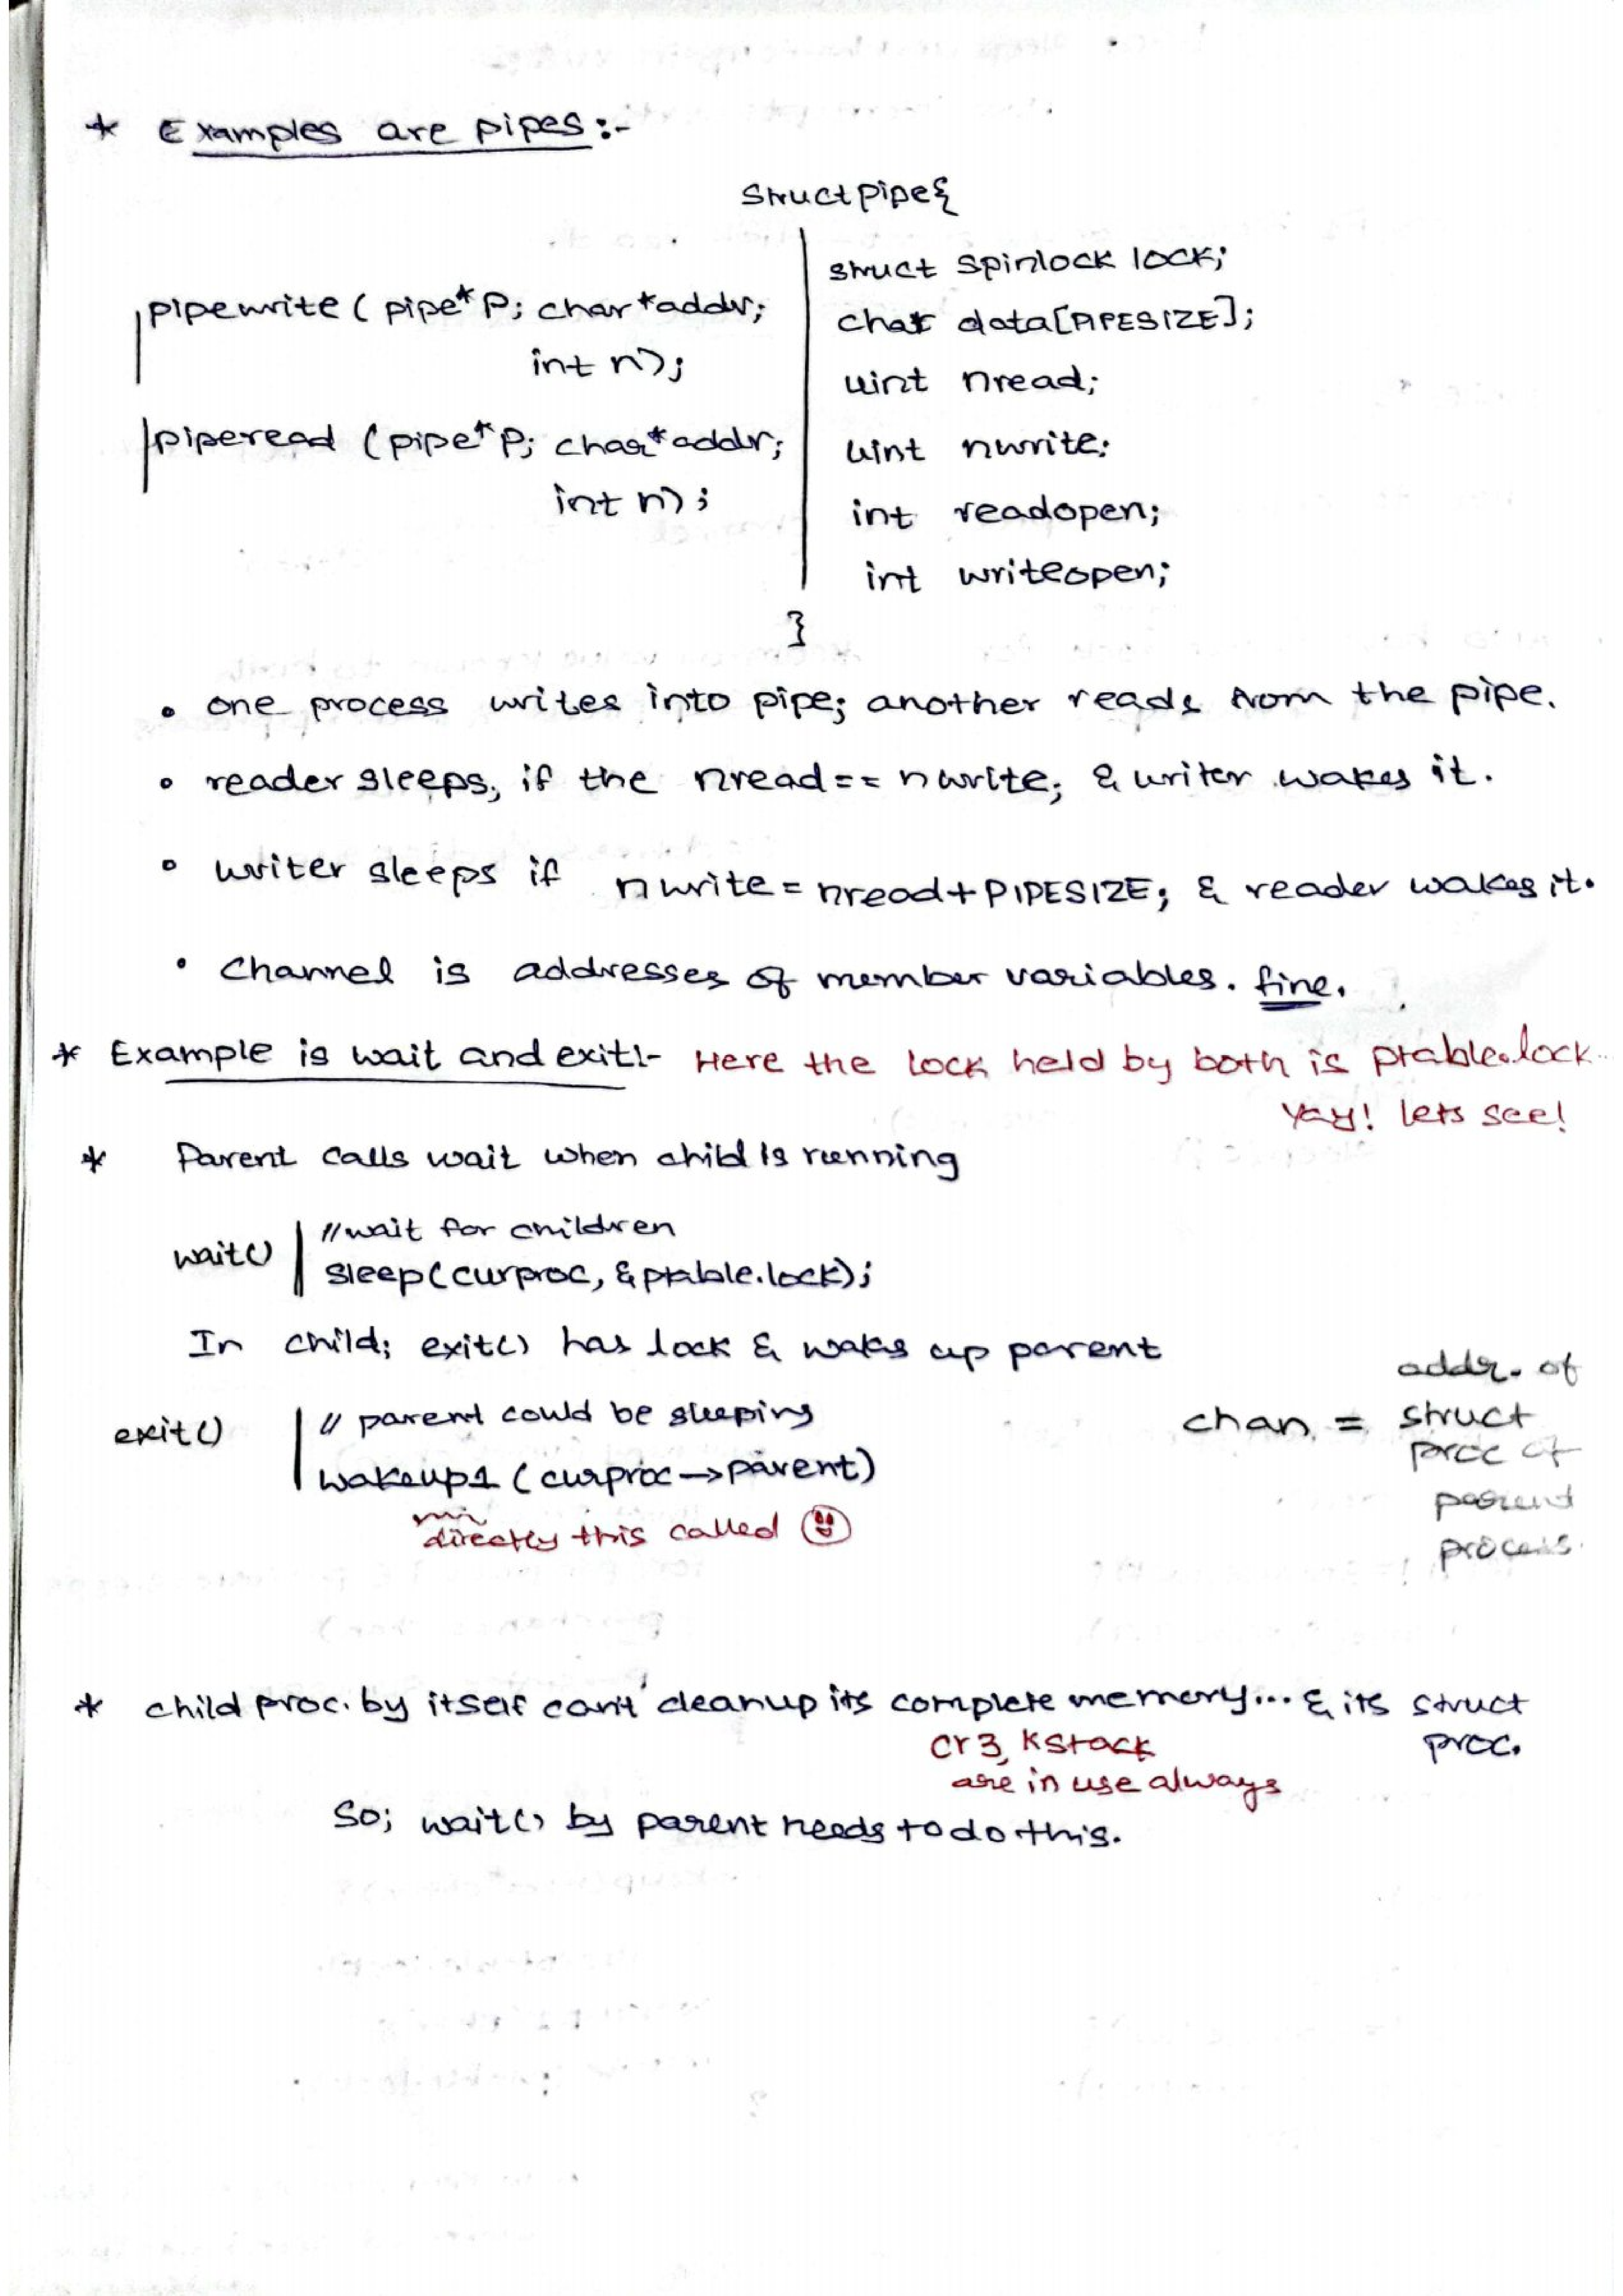 * Examples are pipes:-
struct pipe{
struct spinlock lock;
char data[PIPESIZE];
uint nread;
uint nwrite;
int readopen;
int writeopen;
}
pipewrite ( pipe* p; char *addr;
int n);
piperead ( pipe* p; char* addr;
int n);
• one process writes into pipe; another reads from the pipe.
• reader sleeps, if the nread == nwrite; & writer wakes it.
• writer sleeps if nwrite = nread + PIPESIZE; & reader wakes it.
• Channel is addresses of member variables. fine.
* Example is wait and exit:- Here the lock held by both is ptable.lock...
Yay! lets see!
* Parent calls wait when child is running
wait() //wait for children
sleep(curproc, &ptable.lock);
In child; exit() has lock & wakes up parent
exit() // parent could be sleeping
wakeup1 (curproc->parent)
directly this called
chan = addr. of
struct
proc of
parent
process.
* child proc. by itself can't cleanup its complete memory... & its struct
proc.
cr3, kstack
are in use always
So; wait() by parent needs to do this.